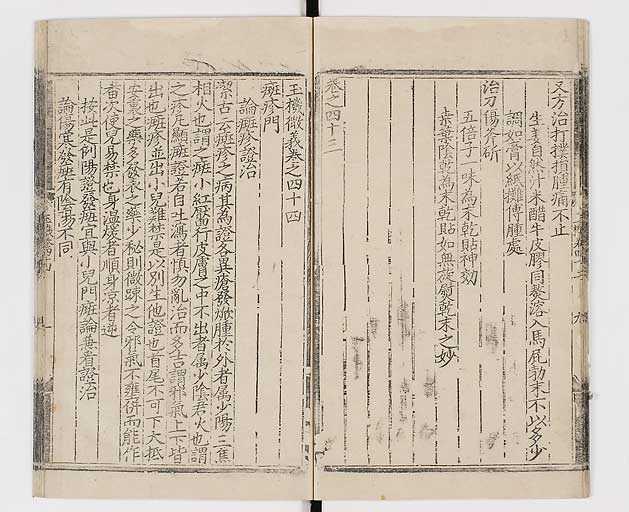 又方治打撲損腫痛不止
生姜自然汁米醋牛皮膠同熬溶入馬屁勃末不以多少
調如膏以紙攤傅腫處
治刀傷斧斫
五倍子一味為末乾貼神効
桒葉陰乾為末乾貼如無旋熨乾末之妙
卷之四十三
玉機微義卷之四十四
斑疹門
論斑疹證治
潔古云斑疹之病其為證各異瘡發焮腫於外者属少陽三焦
相火也謂之斑小紅靨行皮膚之中不出者属少陰君火也謂
之疹凡顯斑證若自吐瀉者慎勿亂治而多吉謂邪氣上下皆
出也斑疹並出小兒難禁是以別生他證也首尾不可下大抵
安裏之藥多發表之藥少秘則微踈之令邪氣不壅併而能作
番次使兒易禁也身温煖者順身凉者逆
按此是例陽證發斑宜與小兒門斑論兼看證治
論傷寒發斑有陰陽不同